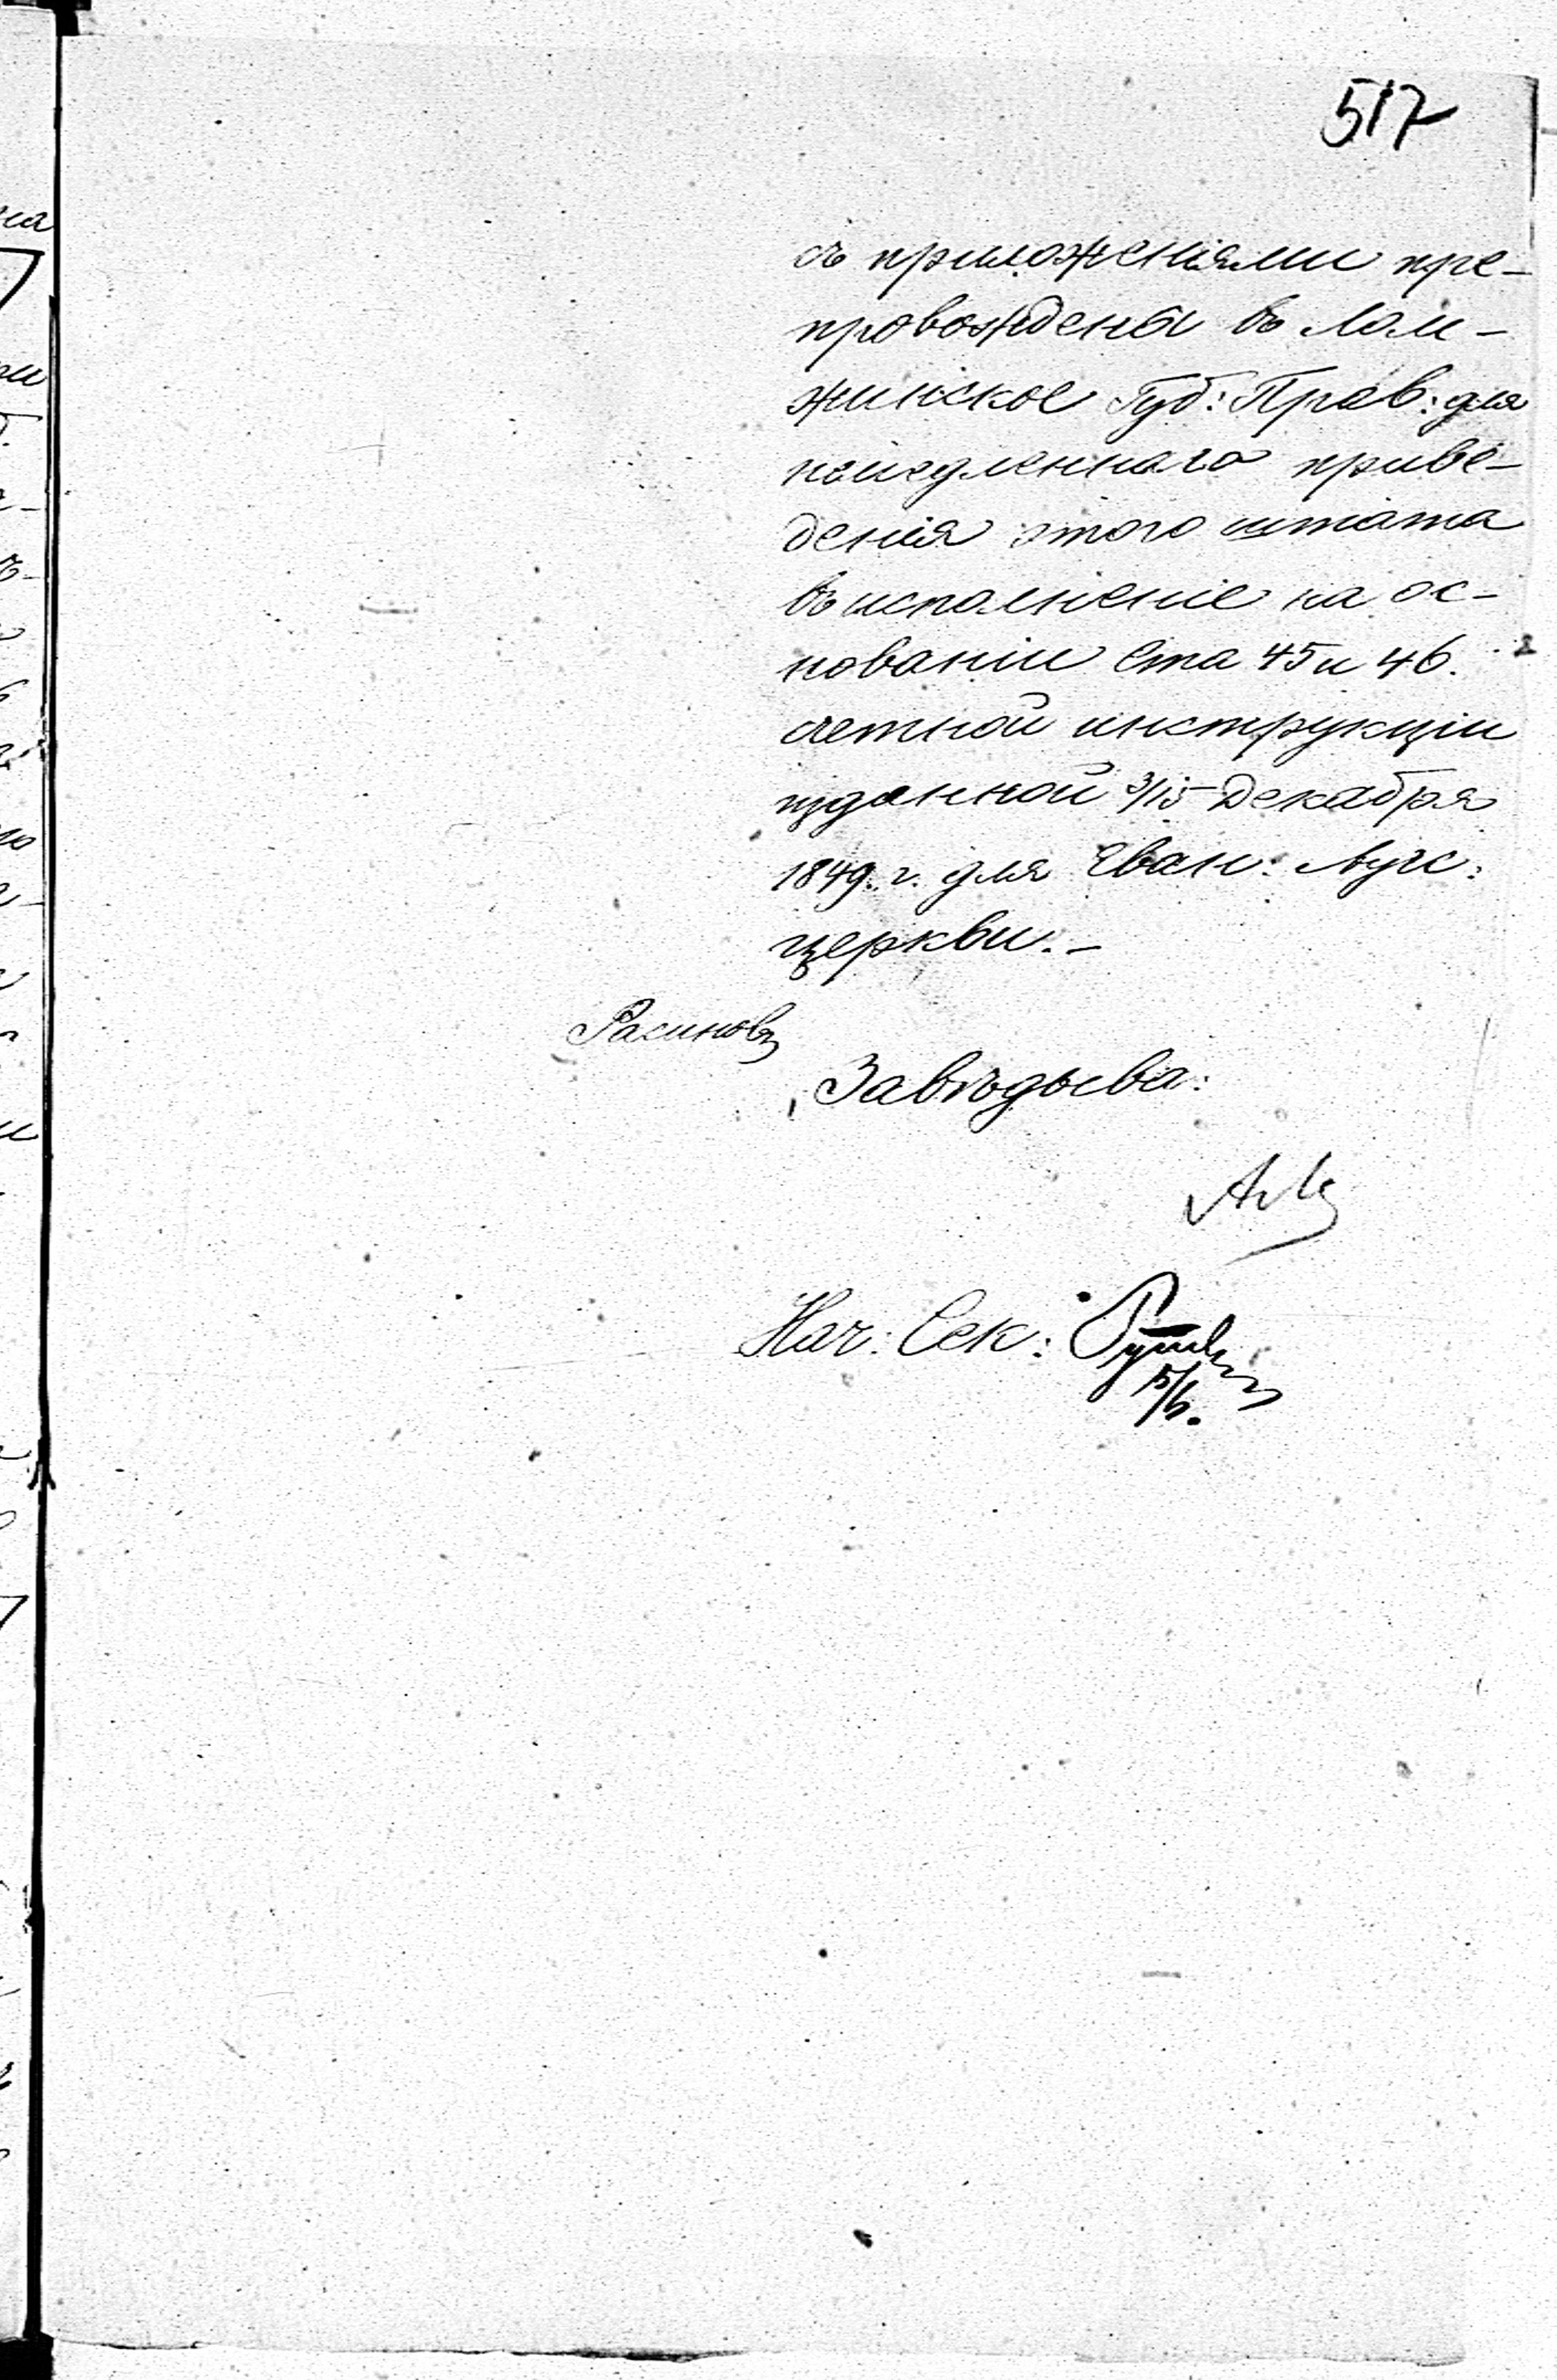 517
съ приложеніями пре-
провождены въ Лом-
жинское Губ: Прав: для
немедленнаго приве-
денія этого штата
въ исполненіе на ос-
нованіи Ста 45 и 46.
счетной инструкціи
изданной 3/15 Декабря
1849. г. для Еван: Аугс:
церкви. -
Завѣдыва:
Нач: Сек: